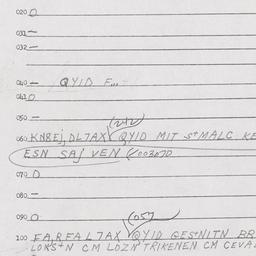 020 O
031 —
032 —
040 — QYID F...
041 O
050 —
(242)
060 KNREj, DL7AX QYID MIT S+MALC KE
ESN SAJ VEN (/003070
070 O
080 —
090 O (057)
100 FA, RFAL7AX QYID GES+NITN BR
LOKS+N CM LOZN TRIKENEN CM CEVA